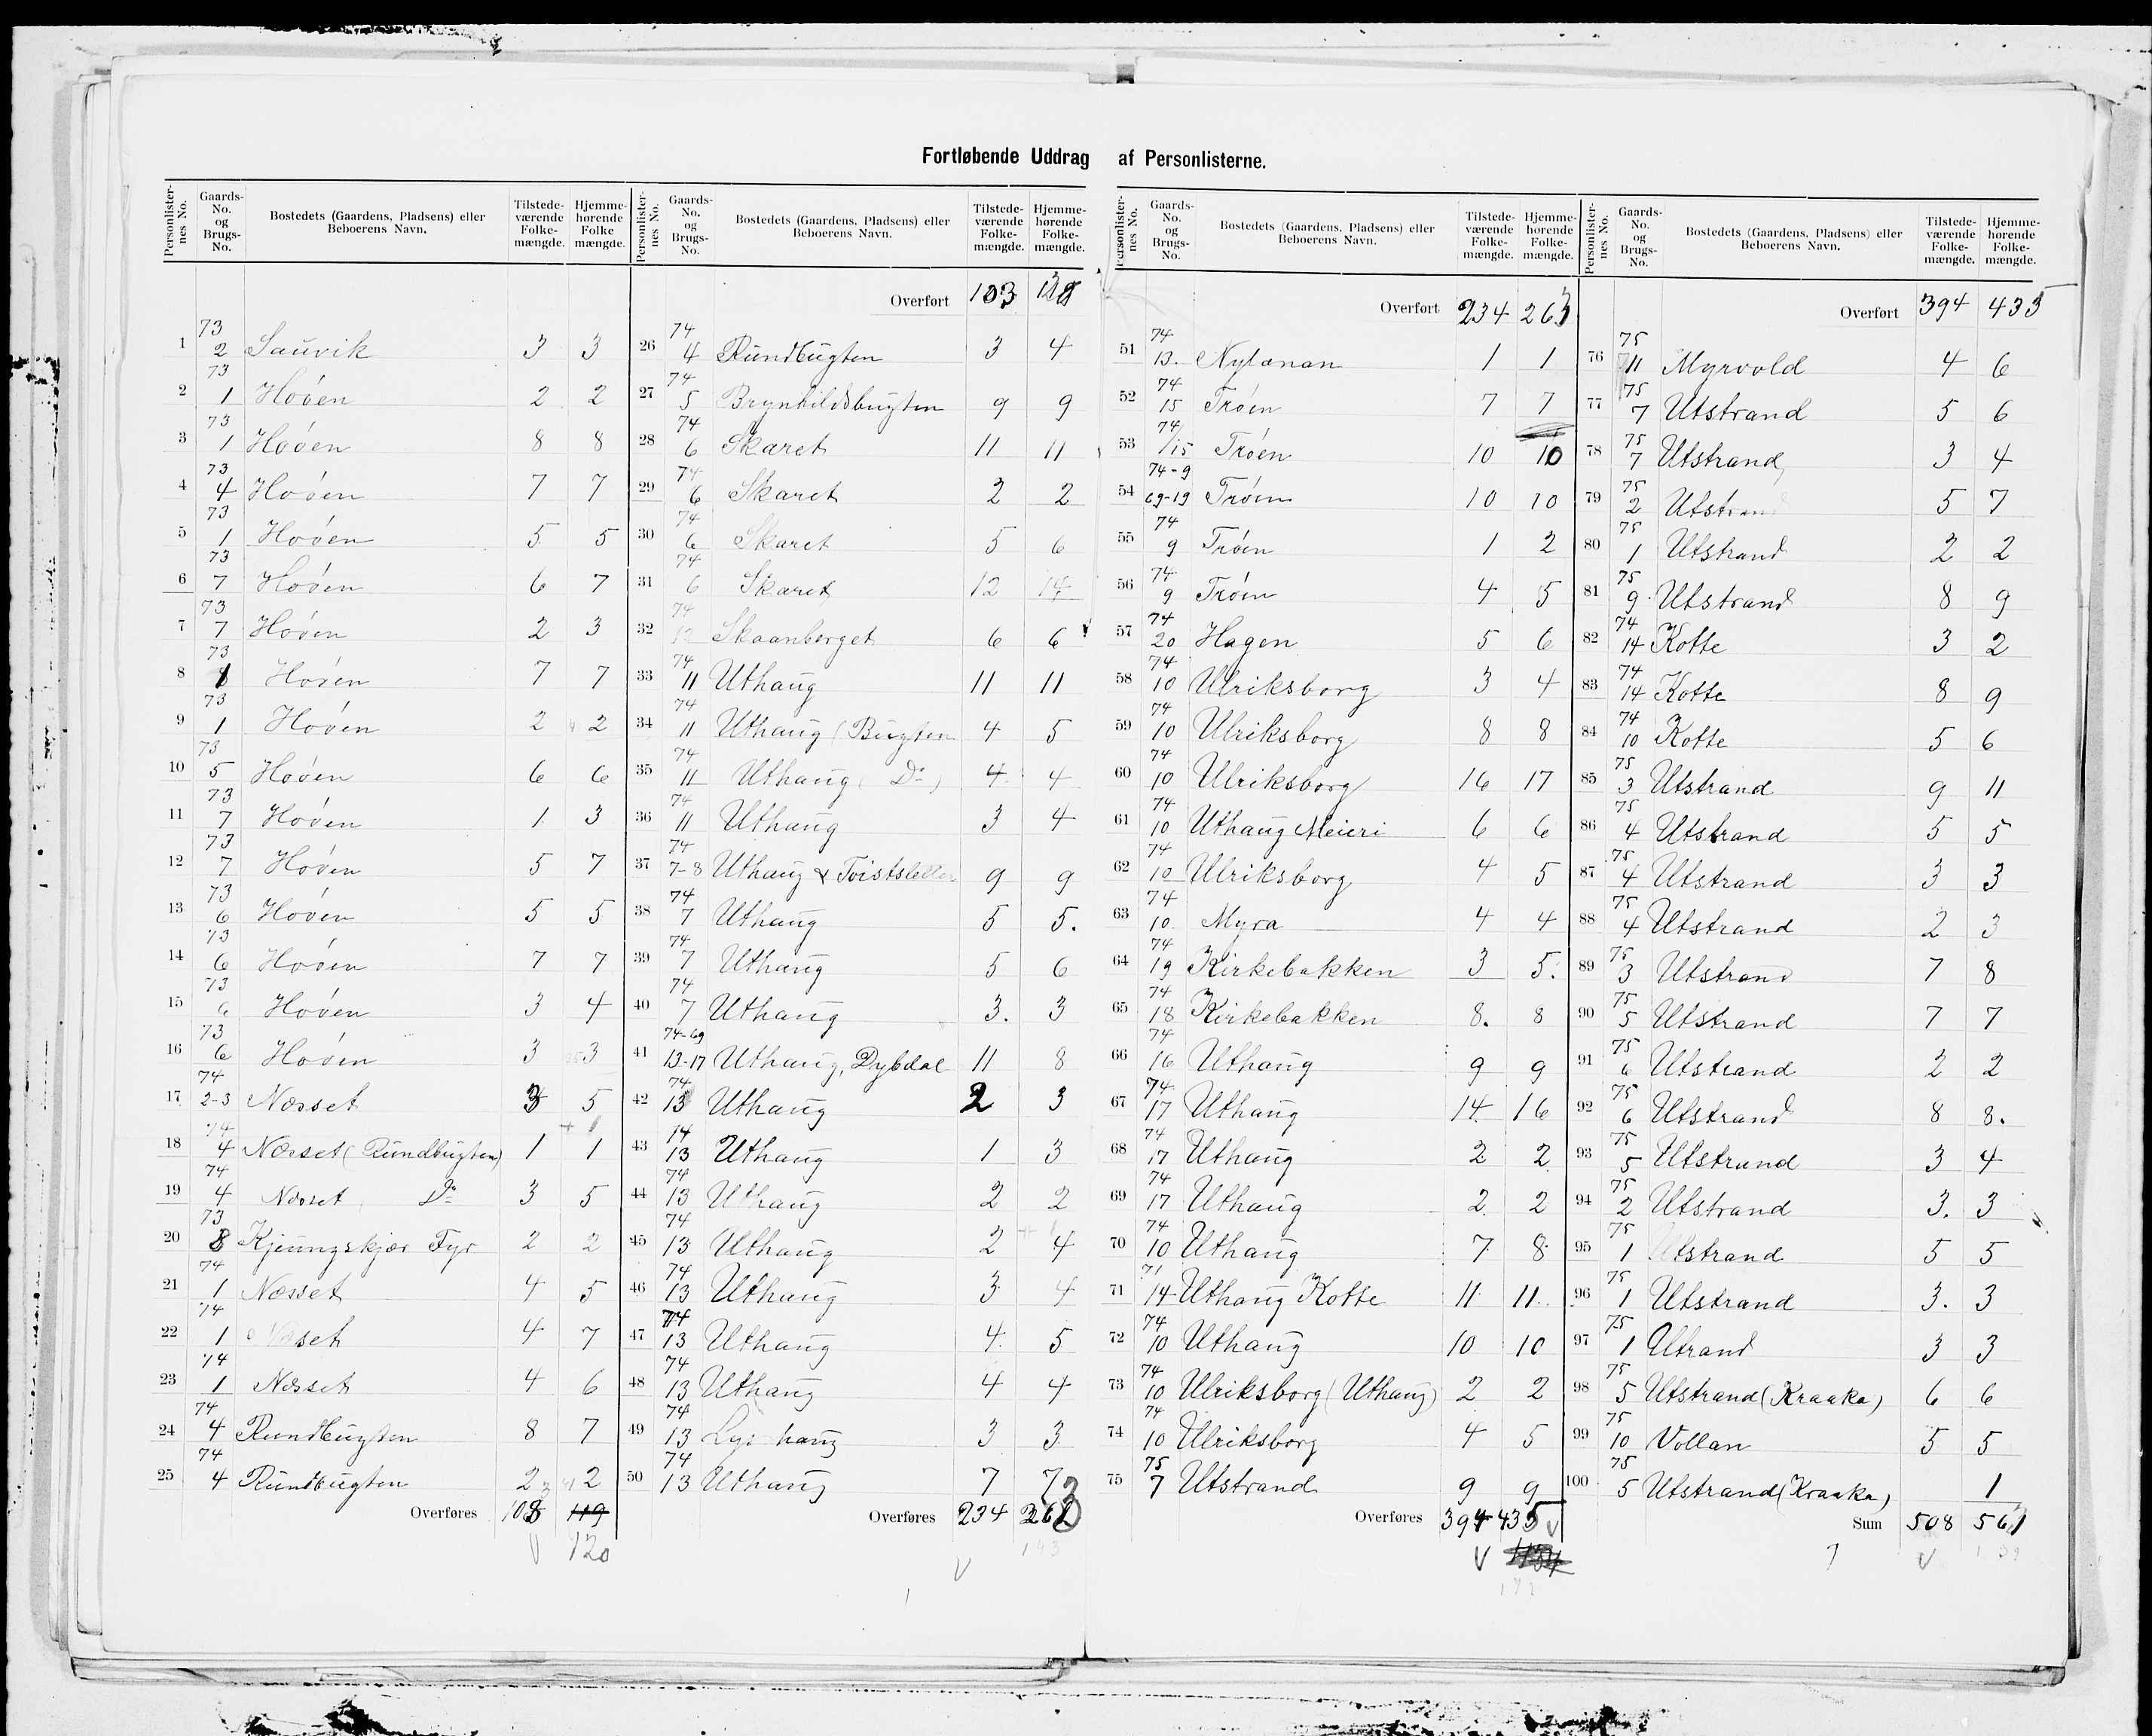 Fortløbende Uddrag af Personlisterne.
Personlisternes No. Gaards-No. og Brugs-No. Bostedets (Gaardens, Pladsens) eller Beboerens Navn. Tilstedeværende Folkemængde. Hjemmehørende Folkemængde.
1 73 2 Sauvik 3 3
2 73 1 Hoöen 2 2
3 73 1 Hoöen 8 8
4 73 4 Hoöen 7 7
5 73 1 Hoöen 5 5
6 73 7 Hoöen 6 7
7 73 7 Hoöen 2 3
8 73 1 Hoöen 7 7
9 73 1 Hoöen 2 2
10 73 5 Hoöen 6 6
11 73 7 Hoöen 1 3
12 73 7 Hoöen 5 7
13 73 6 Hoöen 5 5
14 73 6 Hoöen 7 7
15 73 6 Hoöen 3 4
16 73 6 Hoöen 3 3
17 74 2-3 Næsset 3 5
18 74 4 Næsset (Rundbugten) 1 1
19 74 4 Næsset Do 3 5
20 73 8 Kjeungskjær Fyr 2 2
21 74 1 Næsset 4 5
22 74 1 Næsset 4 7
23 74 1 Næsset 4 6
24 74 4 Rundbugten 8 7
25 74 4 Rundbugten 2 2
Overføres 103 119
120
Personlisternes No. Gaards-No. og Brugs-No. Bostedets (Gaardens, Pladsens) eller Beboerens Navn. Tilstedeværende Folkemængde. Hjemmehørende Folkemængde.
Overført 103
26 74 4 Rundbugten 3 4
27 74 5 Brynhildsbugten 9 9
28 74 6 Skaret 11 11
29 74 6 Skaret 2 2
30 74 6 Skaret 5 6
31 74 6 Skaret 12 14
32 74 12 Skaanberget 6 6
33 74 11 Uthaug 11 11
34 74 11 Uthaug (Bugten 4 5
35 74 11 Uthaug (Do) 4 4
36 74 11 Uthaug 3 4
37 74 7-8 Uthaug & 9 9
38 74 7 Uthaug 5 5.
39 74 7 Uthaug 5 6
40 74 7 Uthaug 3. 3
41 74-69 13-17 Uthaug, Dybdal 11 8
42 74 13 Uthaug 2 3
43 74 13 Uthaug 1 3
44 74 13 Uthaug 2 2
45 74 13 Uthaug 2 4
46 74 13 Uthaug 3 4
47 74 13 Uthaug 4 5
48 74 13 Uthaug 4 4
49 74 13 haug 3 3
50 74 13 Uthaug 7 7
Overføres 234 262
143
Personlisternes No. Gaards-No. og Brugs-No. Bostedets (Gaardens, Pladsens) eller Beboerens Navn. Tilstedeværende Folkemængde. Hjemmehørende Folkemængde.
Overført 234 263
51 74 13. Nylænan 1 1
52 74 15 Trøen 7 7
53 74 /15 Trøen 10 10
54 74-9 69-19 Trøen 10 10
55 74 9 Trøen 1 2
56 74 9 Trøen 4 5
57 74 20 Hagen 5 6
58 74 10 Ulriksborg 3 4
59 74 10 Ulriksborg 8 8
60 74 10 Ulriksborg 16 17
61 74 10 Uthaug Meieri 6 6
62 74 10 Ulriksborg 4 5
63 74 10 Myra 4 4
64 74 19 Kirkebakken 3 5.
65 74 18 Kirkebakken 8. 8
66 74 16 Uthaug 9 9
67 74 17 Uthaug 14 16
68 74 17 Uthaug 2 2
69 74 17 Uthaug 2 2
70 74 10 Uthaug 7 8
71 71 14 Uthaug Kotte 11 11
72 74 10 Uthaug 10 10
73 74 10 Ulriksborg (Uthaug) 2 2
74 74 10 Ulriksborg 4 5
75 75 7 Utstrand 9 9
Overføres 394 435
Personlisternes No. Gaards-No. og Brugs-No. Bostedets (Gaardens, Pladsens) eller Beboerens Navn. Tilstedeværende Folkemængde. Hjemmehørende Folkemængde.
Overført 394 435
76 75 11 Myrvold 4 6
77 75 7 Utstrand 5 6
78 75 7 Utstrand 3 4
79 75 2 Utstrand 5 7
80 75 1 Utstrand 2 2
81 75 9 Utstrand 8 9
82 74 14 Kotte 3 2
83 74 14 Kotte 8 9
84 74 10 Kotte 5 6
85 75 3 Utstrand 9 11
86 75 4 Utstrand 5 5
87 75 4 Utstrand 3 3
88 75 4 Utstrand 2 3
89 75 3 Utstrand 7 8
90 75 5 Utstrand 7 7
91 75 6 Utstrand 2 2
92 75 6 Utstrand 8 8.
93 75 5 Utstrand 3 4
94 75 2 Utstrand 3. 3
95 75 1 Utstrand 5 5
96 75 1 Utstrand 3. 3
97 75 1 Utrand 3 3
98 75 5 Utstrand (Kraaka) 6 6
99 75 10 Vollan 5 5
100 75 5 Utstrand (Kraaka) 1
Sum 508 561